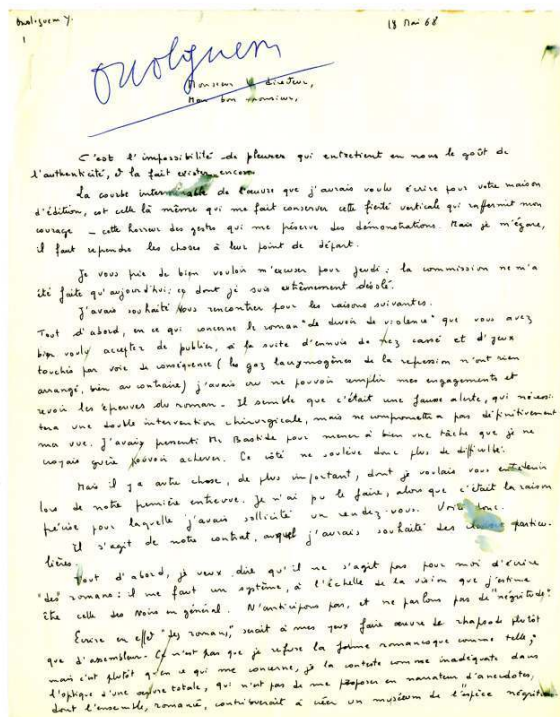 Ouologuem Y.
18 Mai 68
1
Ouologuem
Monsieur le directeur,
Mon bon monsieur,
C'est l'impossibilité de pleurer qui entretient en nous le goût de
l'authenticité, et la fait exister encore.
La courbe interminable de l'œuvre que j'aurais voulu écrire pour votre maison
d'édition, est celle là même qui me fait conserver cette fierté verticale qui raffermit mon
courage - cette horreur des gestes qui me préserve des démonstrations. Mais je m'égare,
il faut reprendre les choses à leur point de départ.
Je vous prie de bien vouloir m'excuser pour jeudi : la commission ne m'a
été faite qu'aujourd'hui; ce dont je suis extrêmement désolé.
J'avais souhaité vous rencontrer pour les raisons suivantes.
Tout d'abord, en ce qui concerne le roman "le devoir de violence" que vous avez
bien voulu accepter de publier, à la suite d'ennuis de nez cassé et d'yeux
touchés par voie de conséquence (les gaz lacrymogènes de la repression n'ont rien
arrangé, bien au contraire) j'avais cru ne pouvoir remplir mes engagements et
revoir les épreuves du roman. Il semble que c'était une fausse alerte, qui nécessi-
tera une double intervention chirurgicale, mais ne compromettra pas définitivement
ma vue. J'avais pressenti Mr Bastide pour mener à bien une tâche que je ne
croyais guère pouvoir achever. Ce côté ne soulève donc plus de difficulté.
Mais il y a autre chose, de plus important, dont je voulais vous entretenir
lors de notre première entrevue. Je n'ai pu le faire, alors que c'était la raison
précise pour laquelle j'avais sollicité un rendez-vous. Voici donc.
Il s'agit de notre contrat, auquel j'aurais souhaité des clauses particu-
lières.
Tout d'abord, je veux dire qu'il ne s'agit pas pour moi d'écrire
"des" romans : il me faut un système, à l'échelle de la vision que j'estime
être celle des Noirs en général. N'anticipons pas, et ne parlons pas de "négritude".
Ecrire en effet "des romans," serait à mes yeux faire œuvre de rhapsode plutôt
que d'assembleur. Ce n'est pas que je refuse la forme romanesque comme telle;
mais c'est plutôt qu'en ce qui me concerne, je la conteste comme inadéquate dans
l'optique d'une œuvre totale, qui n'est pas de me proposer en narrateur d'anecdotes,
dont l'ensemble, romancé, contribuerait à créer un muséum de l'espèce